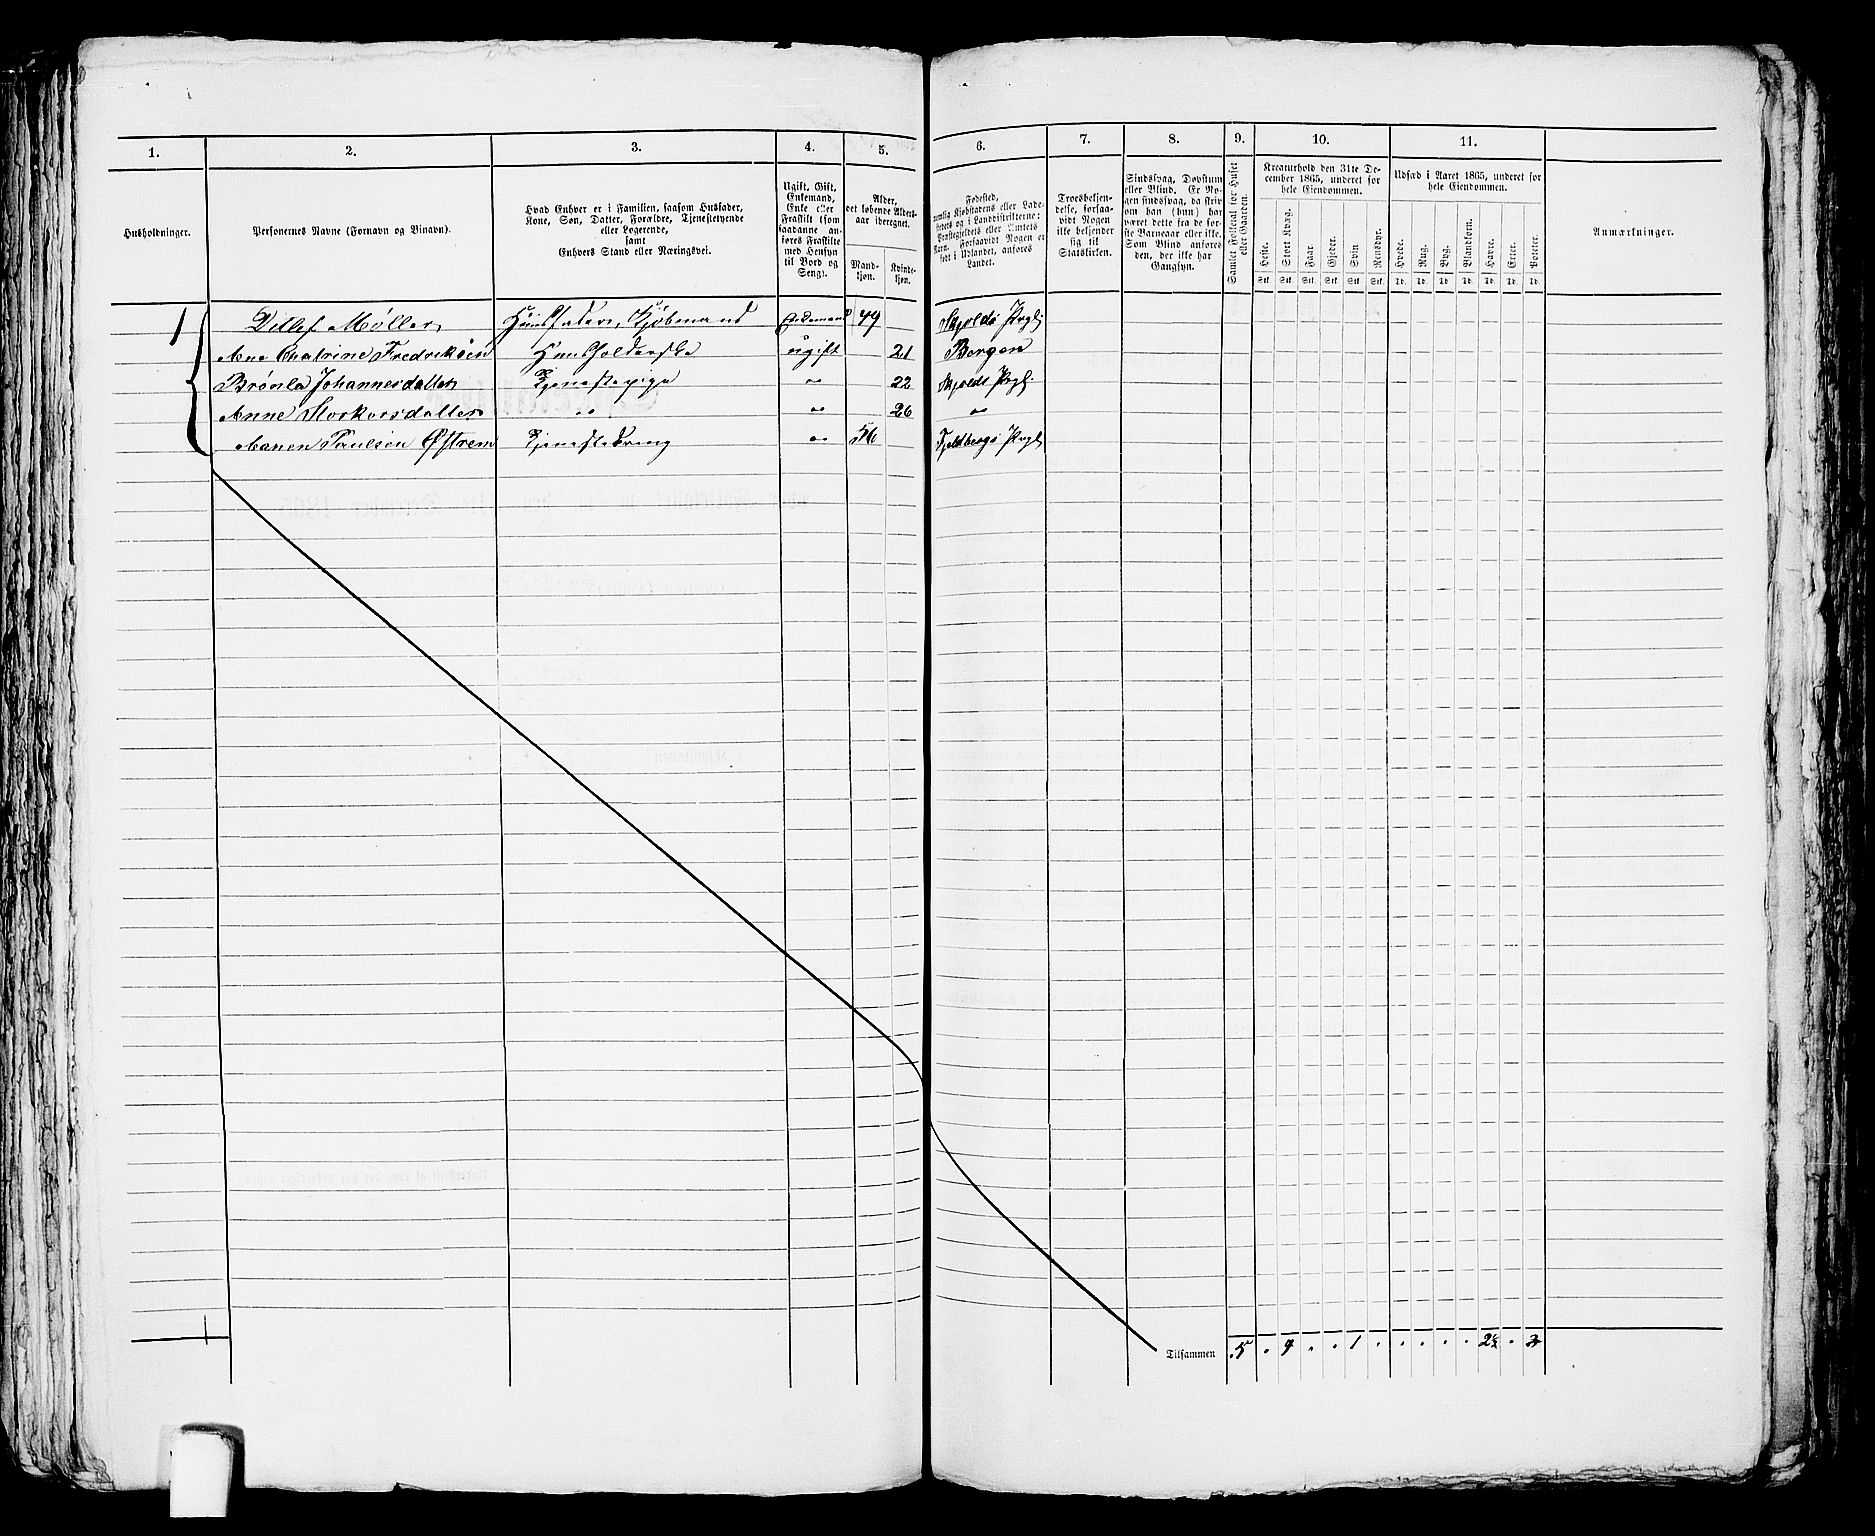 1. 2. 3. 4. 5. 6. 7. 8. 9. 10. 11.
Husholdninger.
Personernes Navne (Fornavn og Vinavn).
Hvad Enhver er i Familien, saasom Husfader,
Kone, Søn, Datter, Forældre, Tjenestetyende
eller Logerende,
samt
Enhvers Stand eller Næringsvei.
Ugift, Gift,
Enkemand,
Enke eller
Fraskilt (som
saadanne an-
føres Fraskilte
med Hensyn
til Bord og
Seng).
Alder,
det løbende Alders-
aar iberegnet.
Mand-
kjøn.
Kvinde-
kjøn.
Fødested,
nemlig Kjøbstadens eller Lade-
stedets og i Landdistrikterne:
Præstegjeldets eller Amtets
Navn. Forsaavidt Nogen er
født i Udlandet, anføres
Landet.
Troesbekjen-
delse, forsaa-
vidt Nogen
ikke bekjender
sig til
Statskirken.
Sindssvag, Døvstum
eller Blind. Er No-
gen sindssvag, da skriv
om han (hun) har
været dette fra de før-
ste Barneaar eller ikke.
Som Blind anføres
den, der ikke har
Gangsyn.
Samlet Folketal for Huset
eller Gaarden.
Kreaturhold den 31te De-
cember 1865, underet for
hele Eiendommen.
Heste. Stort Kvæg. Faar. Gjeder. Svin Rensdyr.
Stk. Stk. Stk. Stk. Stk. Stk.
Udsæd i Aaret 1865, underet for
hele Eiendommen.
Hvede. Rug. Byg. Blandkorn. Havre. Erter. Poteter.
Td. Td. Td. Td. Td. Td. Td.
Anmærkninger.
1 Ditlef Møller Huusfader, Kjøbmand Enkemand 49 Skjolds Prglj
Ane Chatrine Fredriksen Huusholderske ugift 21 Bergen
Johannesdatter Tjenestepige " 22 Skjolds Prglj.
Anne Storkorsdatter " " 26 "
Paulsen Østrem Tjenestedreng " Fjeldbergs Prglj
Tilsammen 5 " 4 " " 1 " " " " " " 3